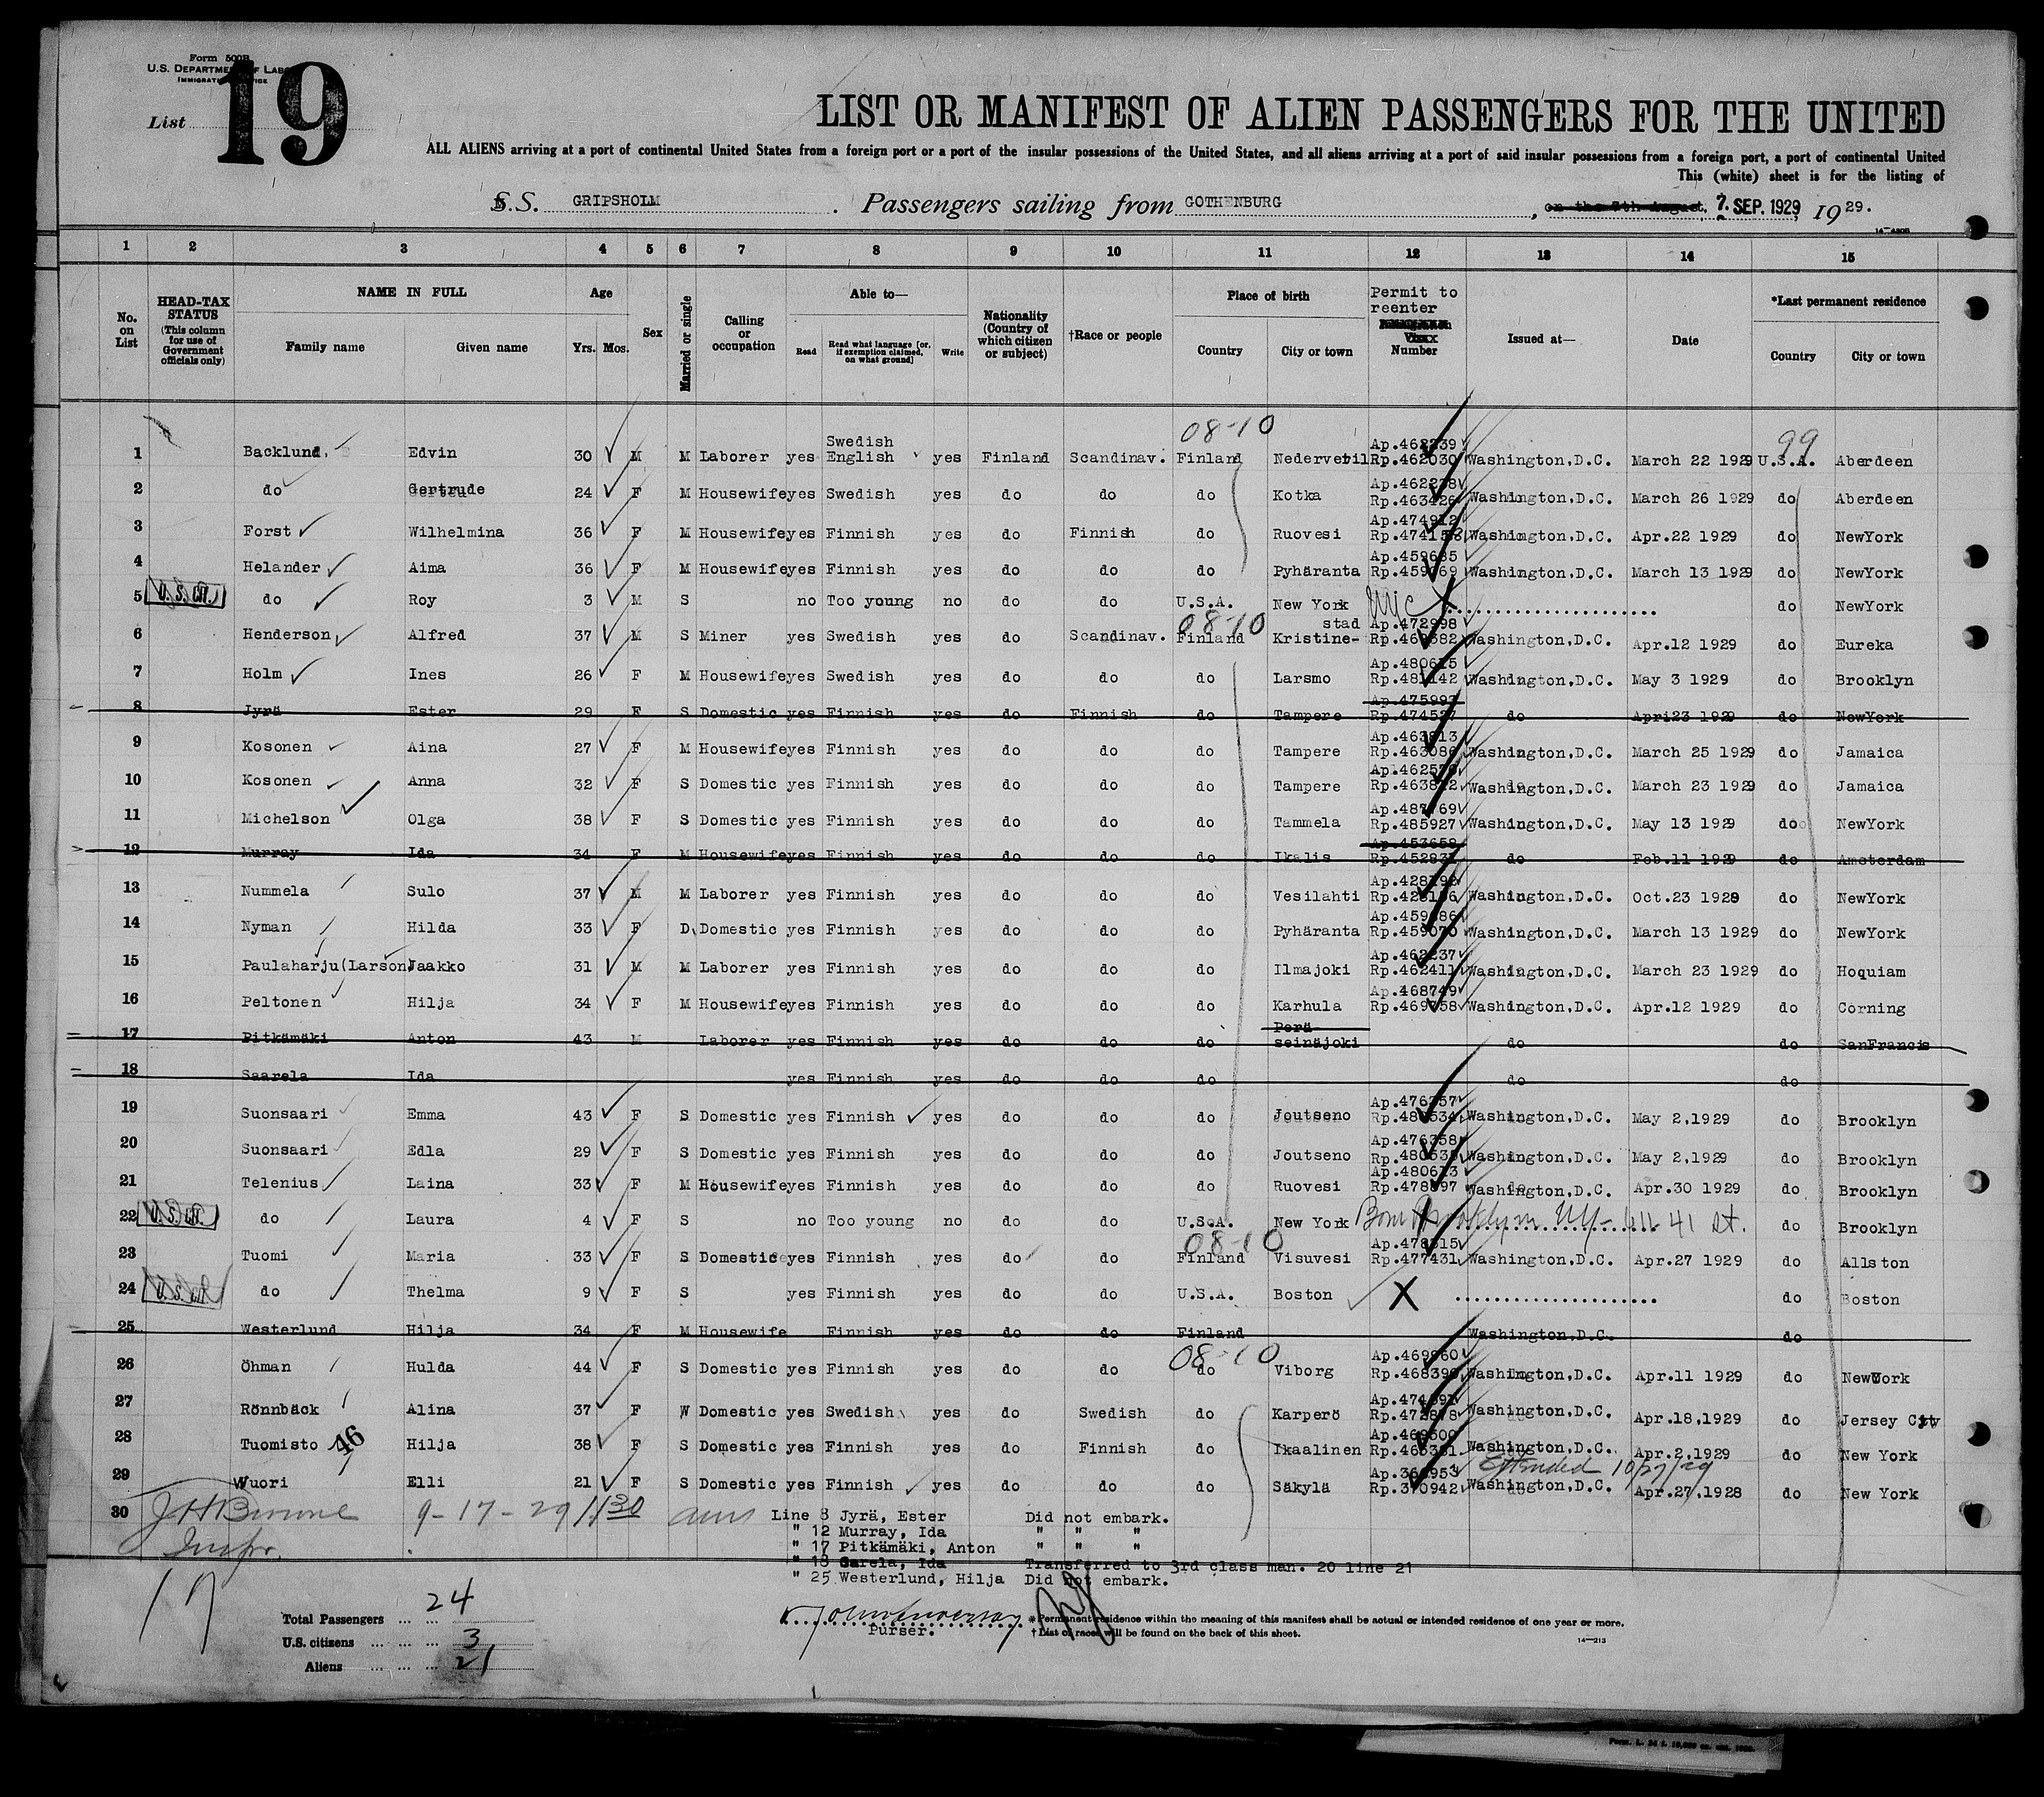 Form 500B
U.S. DEPARTMENT OF LABOR
IMMIGRATION SERVICE
List 19
LIST OR MANIFEST OF ALIEN PASSENGERS FOR THE UNITED
ALL ALIENS arriving at a port of continental United States from a foreign port or a port of the insular possessions of the United States, and all aliens arriving at a port of said insular possessions from a foreign port, a port of continental United
This (white) sheet is for the listing of
S.S. GRIPSHOLM . Passengers sailing from GOTHENBURG , on the 7th August, 7. SEP. 1929, 1929.
14—430B
1 2 3 4 5 6 7 8 9 10 11 12 13 14 15
No. on List
HEAD-TAX STATUS (This column for use of Government officials only)
NAME IN FULL Family name Given name
Age Yrs. Mos.
Sex
Married or single
Calling or occupation
Able to— Read Read what language [or, if exemption claimed, on what ground] Write
Nationality (Country of which citizen or subject)
†Race or people
Place of birth Country City or town
Permit to reenter Number
Issued at—
Date
*Last permanent residence Country City or town
08-10 99
1 Backlund, Edvin 30 M M Laborer yes Swedish English yes Finland Scandinav. Finland Nedervetil Ap.462239 Rp.462030 Washington,D.C. March 22 1929 U.S.A. Aberdeen
2 do Gertrude 24 F M Housewife yes Swedish yes do do do Kotka Ap.462238 Rp.463426 Washington,D.C. March 26 1929 do Aberdeen
3 Forst Wilhelmina 36 F M Housewife yes Finnish yes do Finnish do Ruovesi Ap.474912 Washington,D.C. Apr.22 1929 do NewYork
4 Helander Aima 36 F M Housewife yes Finnish yes do do do Pyhäranta Ap.459685 Rp.459069 Washington,D.C. March 13 1929 do NewYork
5 U.S. CIT. do Roy 3 M S no Too young no do do U.S.A. New York do NewYork
08-10
6 Henderson Alfred 37 M S Miner yes Swedish yes do Scandinav. Finland Kristine-stad Ap.472998 Washington,D.C. Apr.12 1929 do Eureka
7 Holm Ines 26 F M Housewife yes Swedish yes do do do Larsmo Ap.480615 Washington,D.C. May 3 1929 do Brooklyn
8 Jyrä Ester 29 F S Domestic yes Finnish yes do Finnish do Tampere Ap.475993 Rp.474527 do Apri23 1929 do NewYork
9 Kosonen Aina 27 F M Housewife yes Finnish yes do do do Tampere Ap.463813 Rp.463086 Washington,D.C. March 25 1929 do Jamaica
10 Kosonen Anna 32 F S Domestic yes Finnish yes do do do Tampere Washington,D.C. March 23 1929 do Jamaica
11 Michelson Olga 38 F S Domestic yes Finnish yes do do do Tammela Rp.485927 Washington,D.C. May 13 1929 do NewYork
12 Murray Ida 34 F M Housewife yes Finnish yes do do do Ikalis Ap.453658 do Feb.11 1929 do Amsterdam
13 Nummela Sulo 37 M M Laborer yes Finnish yes do do do Vesilahti Washington,D.C. Oct.23 1928 do NewYork
14 Nyman Hilda 33 F D Domestic yes Finnish yes do do do Pyhäranta Rp.459070 Washington,D.C. March 13 1929 do NewYork
15 Paulaharju(Larson) Jaakko 31 M M Laborer yes Finnish yes do do do Ilmajoki Ap.462237 Rp.462411 Washington,D.C. March 23 1929 do Hoquiam
16 Peltonen Hilja 34 F M Housewife yes Finnish yes do do do Karhula Ap.468749 Rp.469758 Washington,D.C. Apr.12 1929 do Corning
17 Pitkämäki Anton 43 M Laborer yes Finnish yes do do do Perä-seinäjoki do do SanFrancis
18 Saarela Ida yes Finnish yes do do do do do
19 Suonsaari Emma 43 F S Domestic yes Finnish yes do do do Joutseno Ap.476357 Rp.480534 Washington,D.C. May 2,1929 do Brooklyn
20 Suonsaari Edla 29 F S Domestic yes Finnish yes do do do Joutseno Ap.476358 Rp.480535 Washington,D.C. May 2,1929 do Brooklyn
21 Telenius Laina 33 F M Housewife yes Finnish yes do do do Ruovesi Ap.480613 Rp.478897 Washington,D.C. Apr.30 1929 do Brooklyn
22 U.S. CIT. do Laura 4 F S no Too young no do do U.S.A. New York Born Brooklyn NY- 611 41 St. do Brooklyn
08-10
23 Tuomi Maria 33 F S Domestic yes Finnish yes do do Finland Visuvesi Ap.478315 Rp.477431 Washington,D.C. Apr.27 1929 do Allston
24 U.S. CIT. do Thelma 9 F S yes Finnish yes do do U.S.A. Boston X do Boston
25 Westerlund Hilja 34 F M Housewife Finnish yes do do Finland Washington,D.C. do
08-10
26 Öhman Hulda 44 F S Domestic yes Finnish yes do do do Viborg Ap.469860 Rp.468390 Washington,D.C. Apr.11 1929 do NewYork
27 Rönnbäck Alina 37 F W Domestic yes Swedish yes do Swedish do Karperö Washington,D.C. Apr.18,1929 do Jersey City
28 Tuomisto 46 Hilja 38 F S Domestic yes Finnish yes do Finnish do Ikaalinen Washington,D.C. Apr.2,1929 do New York
Extended 10/27/29
29 Vuori Elli 21 F S Domestic yes Finnish yes do do do Säkylä Rp.370942 Washington,D.C. Apr.27,1928 do New York
30 9-17-29 11 30 am
Inspr.
Line 8 Jyrä, Ester Did not embark.
" 12 Murray, Ida " " "
" 17 Pitkämäki, Anton " " "
" 18 Sarela, Ida Transferred to 3rd class man. 20 line 21
" 25 Westerlund, Hilja Did not embark.
17
Total Passengers ... ... 24
U.S. citizens ... ... ... 3
Aliens ... ... ... 21
Purser.
* Permanent residence within the meaning of this manifest shall be actual or intended residence of one year or more.
† List of races will be found on the back of this sheet.
14—213